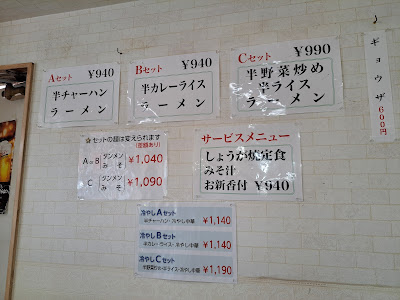 Aセット ¥940
半チャーハン
ラーメン
Bセット ¥940
半カレーライス
ラーメン
Cセット ¥990
半野菜炒め
半ライス
ラーメン
ギョウザ 600円
☆セットの麺は変えられます
(差額あり)
A=B タンメン みそ ¥1,040
C タンメン みそ ¥1,090
サービスメニュー
しょうが焼定食
みそ汁
お新香付 ¥940
冷やしAセット
半チャーハン・冷やし中華 ¥1,140
冷やしBセット
半カレーライス・冷やし中華 ¥1,140
冷やしCセット
半野菜炒め・半ライス・冷やし中華 ¥1,190